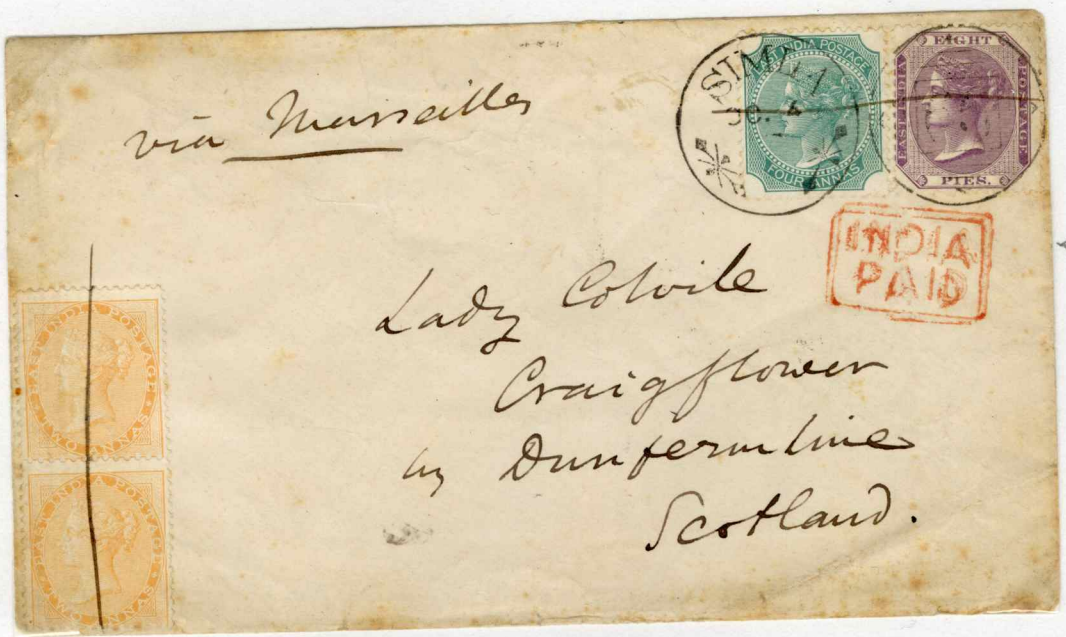 via Marseilles
SIMLA
EAST INDIA POSTAGE
FOUR ANNAS
EIGHT
EAST INDIA
POSTAGE
PIES.
INDIA
PAID
Lady Colvile
Craigflower
by Dunfermline
Scotland.
EAST INDIA POSTAGE
TWO ANNAS
EAST INDIA POSTAGE
TWO ANNAS